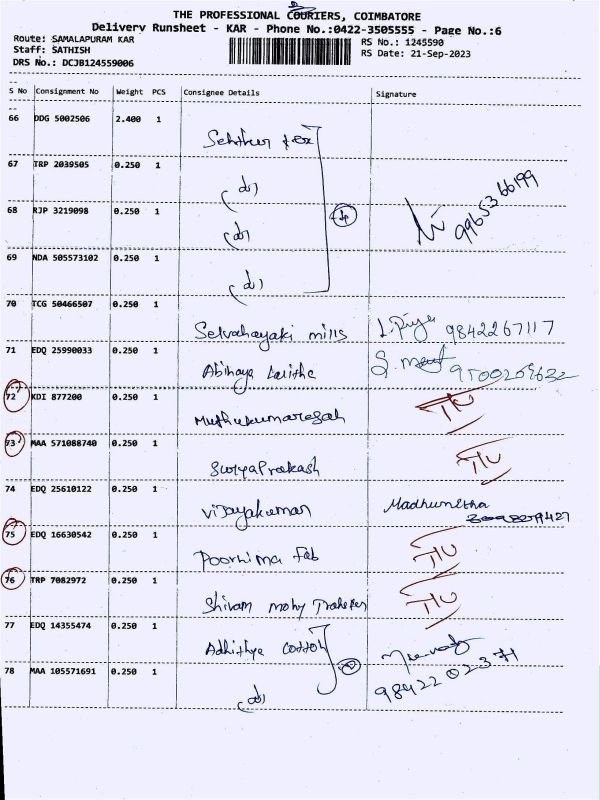 THE PROFESSIONAL COURIERS, COIMBATORE
Delivery Runsheet - KAR - Phone No.:0422-3505555 - Page No.:6
Route: SAMALAPURAM KAR
RS No.: 1245590
Staff: SATHISH
RS Date: 21-Sep-2023
DRS No.: DCJB124559006
S No Consignment No Weight PCS Consignee Details Signature
66 DDG 5002506 2.400 1
67 TRP 2039505 0.250 1
(do)
68 RJP 3219098 0.250 1
(do)
9965366199
69 NDA 505573102 0.250 1
(do)
70 TCG 50466507 0.250 1
Selvanayaki mills L. Priya 9842267117
71 EDQ 25990033 0.250 1
Abinaya Lalitha
72 KDI 877200 0.250 1
Muthukumaresah
73 MAA 571088740 0.250 1
SuryaPrakash
74 EDQ 25610122 0.250 1
Vijayakumar Madhumitha
75 EDQ 16630542 0.250 1
Poornima Fab
76 TRP 7082972 0.250 1
Shivam
77 EDQ 14355474 0.250 1
Adhithya Cotton
78 MAA 105571691 0.250 1
98422 02371
(do)